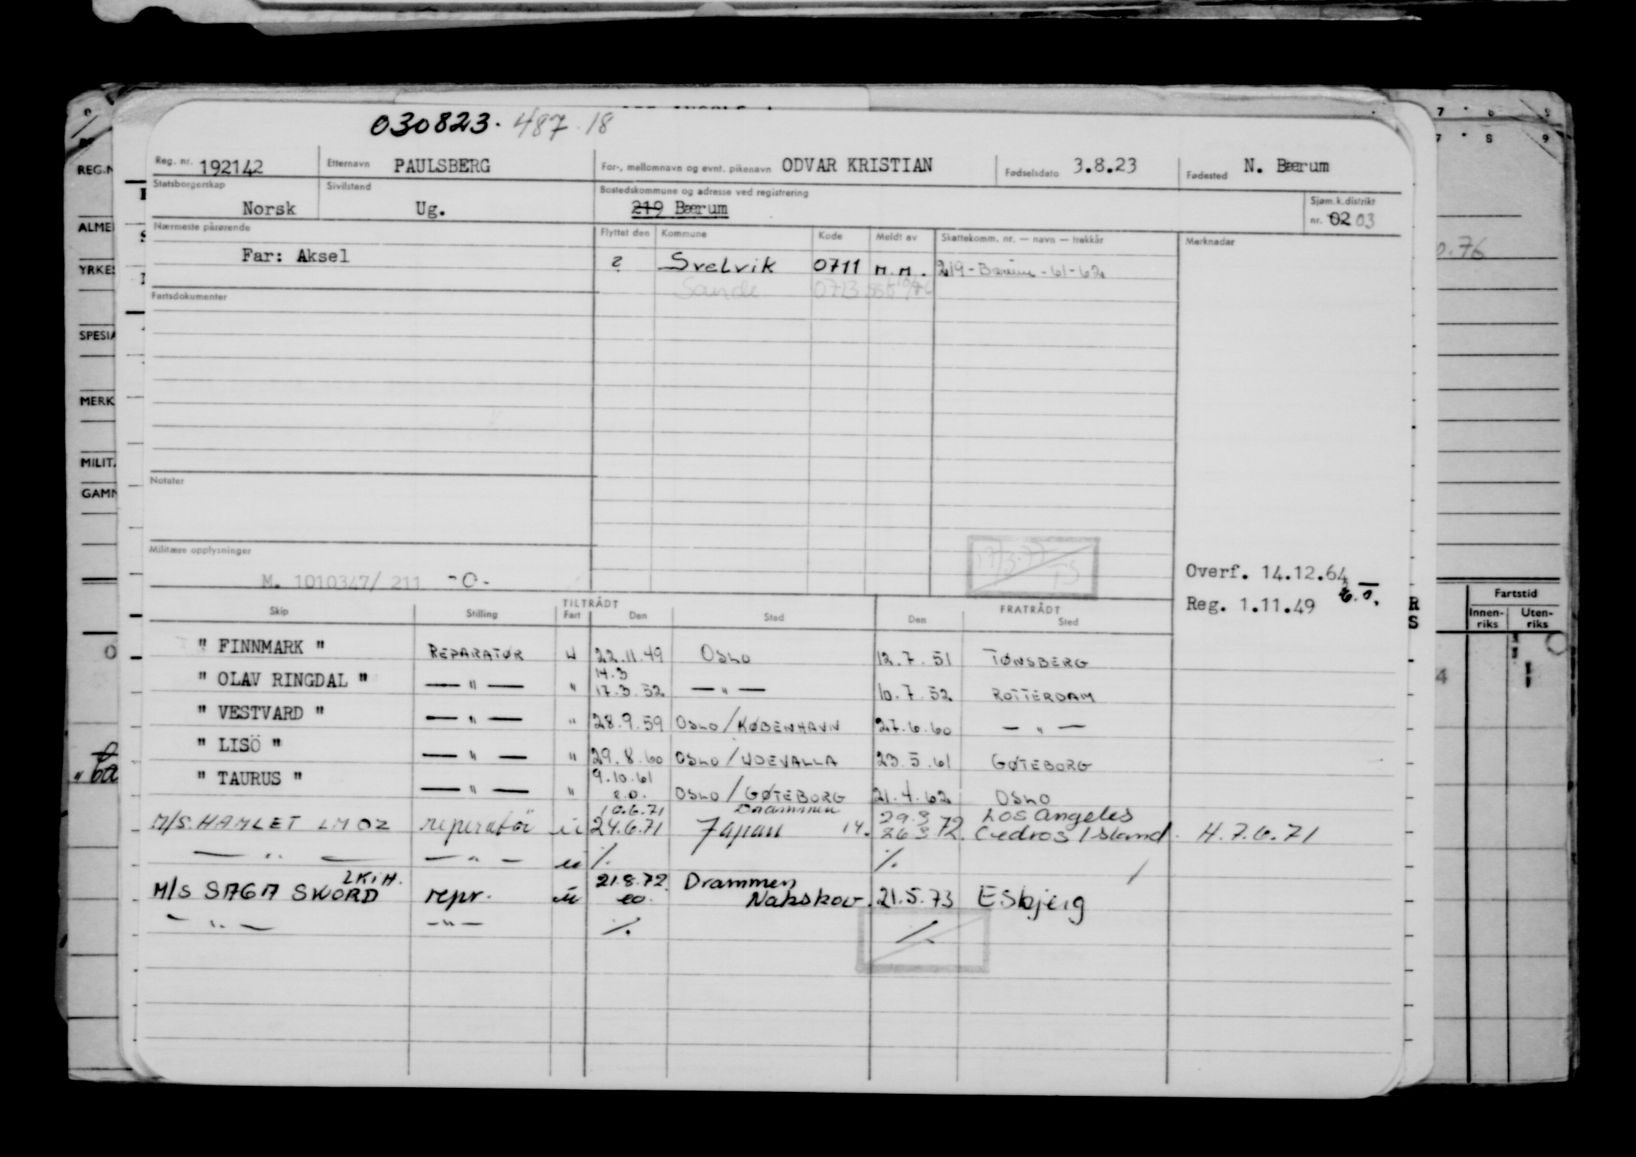 030823. 487 18
Reg. nr. 192142 Etternavn PAULSBERG For-, mellomnavn og evnt. pikenavn ODVAR KRISTIAN Fødselsdato 3.8.23 Fødested N. Bærum
Statsborgerskap Sivilstand Bostedskommune og adresse ved registrering Sjøm.k.distrikt
Norsk Ug. 219 Bærum nr. 02 03
Nærmeste pårørende Flyttet den Kommune Kode Meldt av Skattekomm. nr. — navn — trekkår Merknader
Far: Aksel ? Svelvik 0711 M.M. 219-Bærum-61-62
Sande 0713
Fartsdokumenter
Notater
Militære opplysninger
M. 1010347/ 211 -0-
Overf. 14.12.64
Reg. 1.11.49
TILTRÅDT FRATRÅDT
Skip Stilling Fart Den Sted Den Sted
" FINNMARK " REPARATØR U 22.11.49 OSLO 12.7.51 TØNSBERG
14.3
" OLAV RINGDAL " — " — " 17.3.52 — " — 10.7.52 ROTTERDAM
" VESTVARD " — " — " 28.9.59 OSLO/KØBENHAVN 27.6.60 — " —
" LISÖ " — " — " 29.8.60 OSLO/UDEVALLA 23.5.61 GØTEBORG
9.10.61
" TAURUS " — " — " s.d. OSLO/GØTEBORG 21.4.62 OSLO
10.6.71 Drammen 29.3 72 Los Angeles
M/S. HAMLET LMOZ reperatör u 24.6.71 Japan 14. 26 3 72 Cedros Island. H. 7.6.71
— " — — " — u ⁒ ⁒
LKIH. 21.8.72 Drammen
M/S SAGA SWORD repr. u Nakskov. 21.5.73 Esbjerg
— " — — " — ⁒ ⁒
REG.N
ALME
YRKE
SPESIA
MERK
MILIT.
GAMN
Fartstid
Innen- Uten-
riks riks